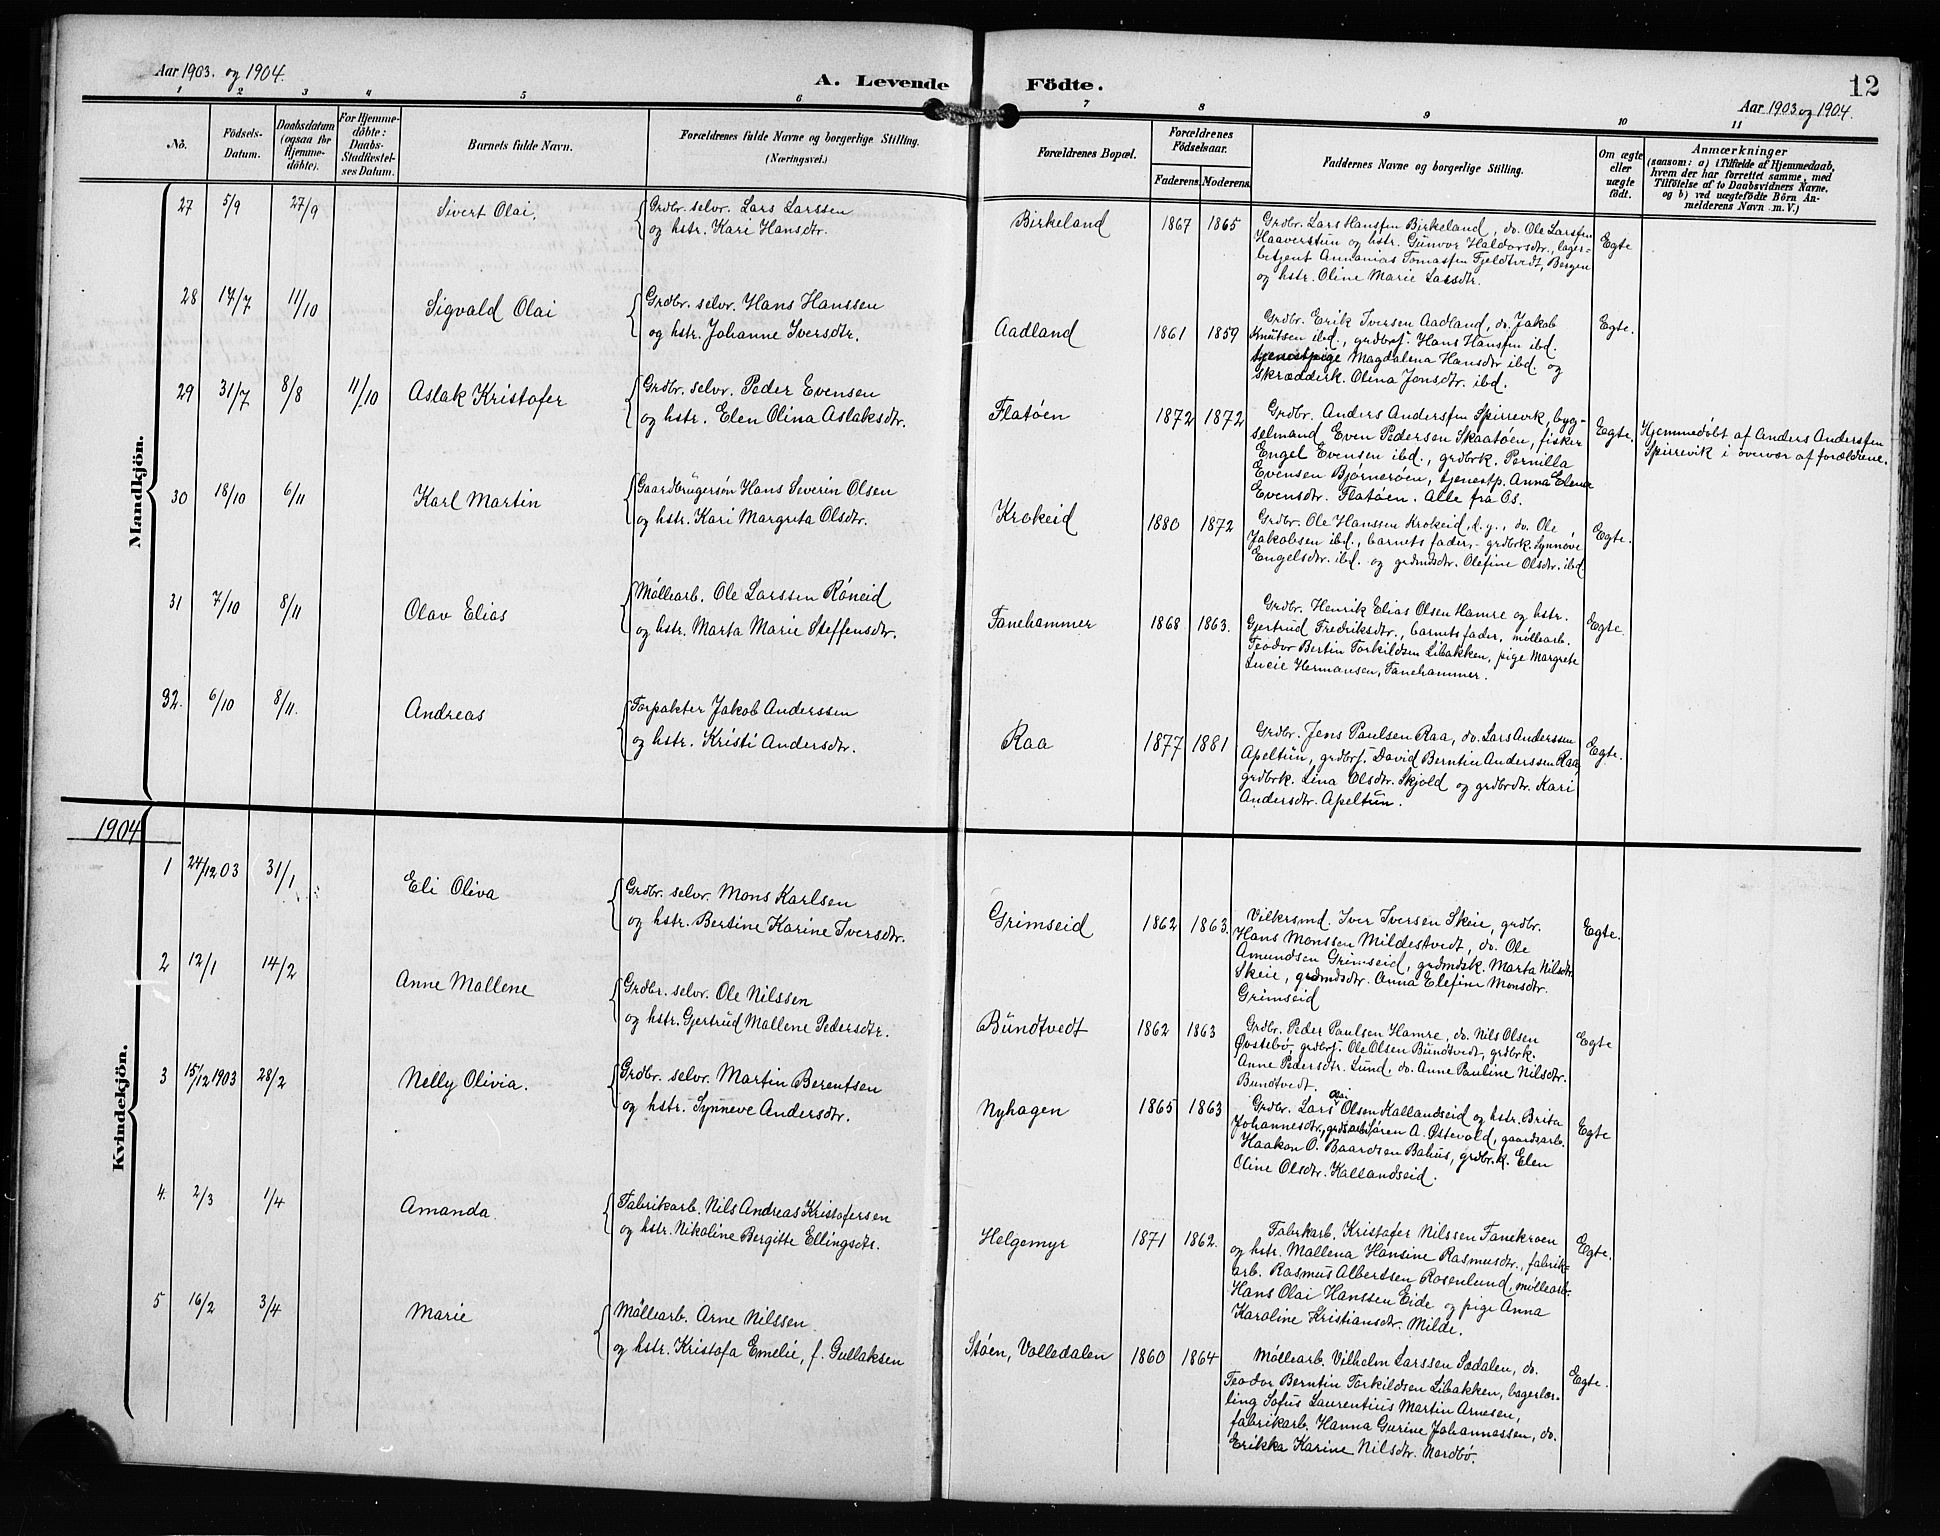 Aar 1903. og 1904.
A. Levende Födte.
12
Aar 1903 og 1904.
1 2 3 4 5 6 7 8 9 10 11
No.
Födsels-
Datum.
Daabsdatum
(ogsaa for
Hjemme-
döbte).
For Hjemme-
döbte:
Daabs-
Stadfæstel-
ses Datum.
Barnets fulde Navn.
Forældrenes fulde Navne og borgerlige Stilling.
(Næringsvei.)
Forældrenes Bopæl.
Forældrenes
Födselsaar.
Faderens. Moderens.
Faddernes Navne og borgerlige Stilling.
Om ægte
eller
uægte
födt.
Anmærkninger
(saasom: a) i Tilfælde af Hjemmedaab,
hvem der har forrettet samme, med
Tilföielse af to Daabsvidners Navne,
og b) ved uægtefödte Börn An-
melderens Navn m. V.)
Mandkjön.
27 5/9 27/9 Sivert Olai.
Grdbr. selvr. Lars Larssen
og hstr. Kari Hansdtr.
Birkeland 1867 1865
Grdbr. Lars Hanssen Birkeland, do. Ole Larssen
Haaverstein og hstr. Gunvor Haldorsdtr., lager-
betjent Annanias Tomassen Fjeldtvedt, Bergen
og hstr. Oline Marie Larsdtr.
Egte
28 17/7 11/10 Sigvald Olai
Grdbr. selvr. Hans Hanssen
og hstr. Johanne Iversdtr.
Aadland 1861 1859
Grdbr. Erik Iversen Aadland, do. Jakob
Knutsen ibd., grdbrs. Hans Hanssen ibd.
tjenestpige Magdalena Hansdtr ibd. og
skrædderk. Olina Jonsdtr. ibd.
Egte.
29 31/7 8/8 11/10 Aslak Kristofer
Grdbr. selvr. Peder Evensen
og hstr. Elen Olina Aslaksdtr.
Flatöen 1872 1872
Grdbr. Anders Anderssen Spirrevik, byg-
selmand Even Pedersen Skaatöen, fisker
Engel Evensen ibd., grdbrk. Pernilla
Evensen Bjørnerøen, tjenestp. Anna Elena
Evensdtr. Flatöen. Alle fra Os.
Egte.
Hjemmedöbt af Anders Anderssen
Spirrevik i overvær af forældrene.
30 18/10 6/11 Karl Martin
Gaardbrugersön Hans Severin Olsen
og hstr. Kari Margreta Olsdtr.
Krokeid 1880 1872
Grdbr. Ole Hanssen Krokeid, d. y., do. Ole
Jakobsen ibd., barnets fader, grdbrk. Synnøve
Engelsdtr. ibd. og grdmdsdtr. Olefine Olsdtr. ibd
Egte.
31 7/10 8/11 Olav Elias
Möllearb. Ole Larssen Röneid
og hstr. Marta Marie Steffensdtr.
Fanehammer 1868 1863.
Grdbr. Henrik Elias Olsen Hamre og hstr.
Gjertrud Fredriksdtr., barnets fader, möllearb.
Teodor Bertin Torkildsen Libakken, pige Margrete
Lucie Hermansen, Fanehammer.
Egte.
32. 6/10 8/11. Andreas
Forpakter Jakob Anderssen
og hstr. Kristi Andersdtr.
Raa 1877 1881
Grdbr. Jens Paulsen Raa, do. Lars Anderssen
Apeltun, grdbrs. David Berntin Anderssen Raa,
grdbrk. Lina Olsdtr. Skjold og grdbrdtr. Kari
Andersdtr. Apeltun.
Egte.
1904
Kvindekjön.
1 24/12 03 31/1 Eli Oliva
Grdbr. selvr. Mons Karlsen
og hstr. Bertine Karine Iversdtr.
Grimseid 1862 1863.
Vilkrsmd. Iver Iversen Skeie, grdbr.
Hans Monssen Mildestvedt, do. Ole
Amundsen Grimseid, grdmdsk. Marta Nilsdtr.
Skeie, grdmdsdtr. Anna Elefine Monsdtr.
Grimseid
Egte.
2 12/1 14/2 Anne Mallene
Grdbr. selvr. Ole Nilssen
og hstr. Gjertrud Mallene Pedersdtr.
Bundtvedt 1862 1863
Grdbr. Peder Paulsen Hamre, do. Nils Olsen
Øvstebø, grdbrs. Ole Olsen Bundtvedt, grdbrk.
Anne Pedersdtr. Lund, do. Anne Pauline Nilsdtr.
Bundtvedt.
Egte
3 15/12 1903 28/2 Nelly Olivia.
Grdbr. selvr. Martin Berentsen
og hstr. Synneve Andersdtr.
Nyhagen 1865 1863
Grdbr. Lars Olai Olsen Kallandseid og hstr. Brita
Johannesdtr., grdsarb. Sören A. Østevold, gaardsarb.
Haakon O. Baardsen Bahus, grdbr.k. Elen
Oline Olsdtr. Kallandseid.
Egte
4. 2/3 1/4 Amanda.
Fabrikarb. Nils Andreas Kristofersen
og hstr. Nikoline Bergitte Ellingsdtr.
Helgemyr 1871 1862.
Fabrkarb. Kristofer Nilssen Fanekroen
og hstr. Mallena Hansine Rasmusdtr., fabrik-
arb. Rasmus Albertsen Rosenlund, möllearb.
Hans Olai Hanssen Eide og pige Anna
Karoline Kristiansdtr. Milde.
Egte.
5 16/2 3/4 Marie
Möllearb. Arne Nilssen
og hstr. Kristofa Emelie, f. Gullaksen
Stöen, Volledalen 1860 1864
Möllearb. Vilhelm Larssen Sædalen, do.
Teodor Berntin Torkildsen Libakken, bagerlær-
ling Sofus Laurentius Martin Arnesen,
fabrikarb. Hanna Gurine Johannassen, do.
Erikka Karine Nilsdtr. Nordbø.
Egte.